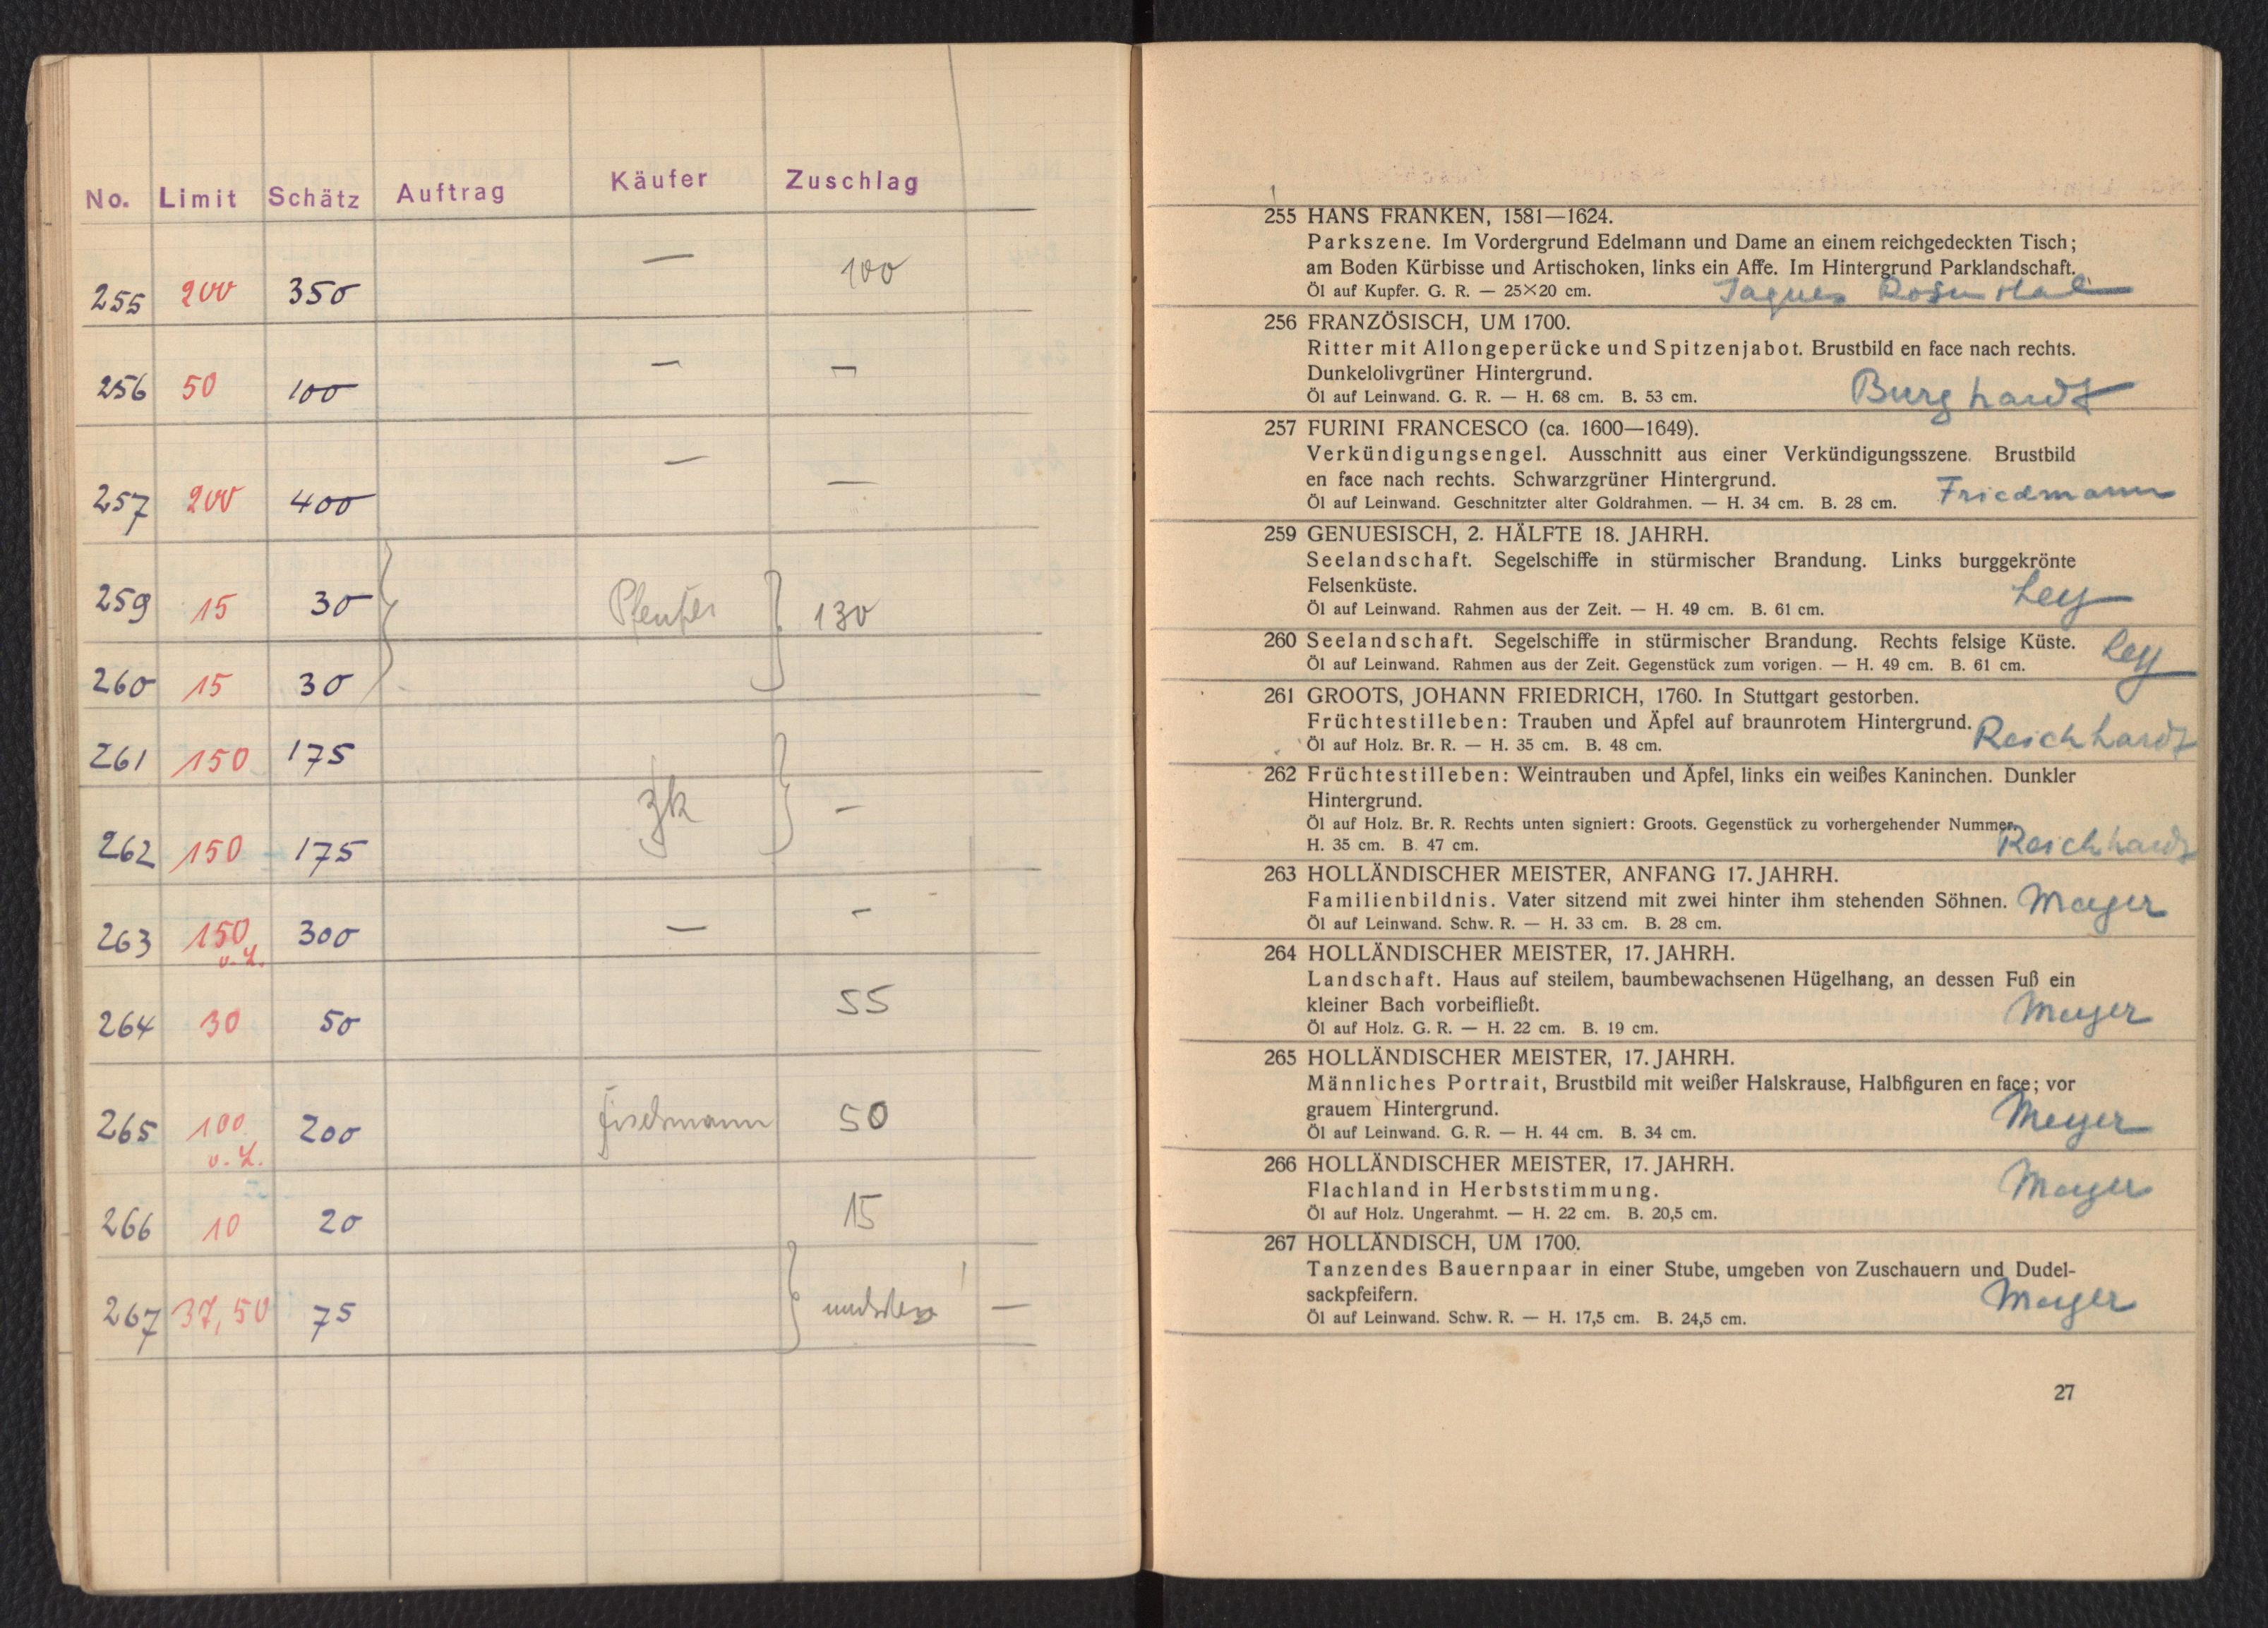 No. Limit Schätz Auftrag Käufer Zuschlag
255 200 350 — 100
256 50 100 — —
257 200 400 — —
259 15 30 130
260 15 30
261 150 175
262 150 175 —
263 150 300 — —
264 30 50 55
265 100 200 50
266 10 20 15
267 37,50 75 —
255 HANS FRANKEN, 1581—1624.
Parkszene. Im Vordergrund Edelmann und Dame an einem reichgedeckten Tisch;
am Boden Kürbisse und Artischoken, links ein Affe. Im Hintergrund Parklandschaft.
Öl auf Kupfer. G. R. — 25×20 cm. Jaques Rosenthal
256 FRANZÖSISCH, UM 1700.
Ritter mit Allongeperücke und Spitzenjabot. Brustbild en face nach rechts.
Dunkelolivgrüner Hintergrund.
Öl auf Leinwand. G. R. — H. 68 cm. B. 53 cm. Burghardt
257 FURINI FRANCESCO (ca. 1600—1649).
Verkündigungsengel. Ausschnitt aus einer Verkündigungsszene. Brustbild
en face nach rechts. Schwarzgrüner Hintergrund.
Öl auf Leinwand. Geschnitzter alter Goldrahmen. — H. 34 cm. B. 28 cm. Friedmann
259 GENUESISCH, 2. HÄLFTE 18. JAHRH.
Seelandschaft. Segelschiffe in stürmischer Brandung. Links burggekrönte
Felsenküste. Ley
Öl auf Leinwand. Rahmen aus der Zeit. — H. 49 cm. B. 61 cm.
260 Seelandschaft. Segelschiffe in stürmischer Brandung. Rechts felsige Küste. Ley
Öl auf Leinwand. Rahmen aus der Zeit. Gegenstück zum vorigen. — H. 49 cm. B. 61 cm.
261 GROOTS, JOHANN FRIEDRICH, 1760. In Stuttgart gestorben.
Früchtestilleben: Trauben und Äpfel auf braunrotem Hintergrund. Reichhardt
Öl auf Holz. Br. R. — H. 35 cm. B. 48 cm.
262 Früchtestilleben: Weintrauben und Äpfel, links ein weißes Kaninchen. Dunkler
Hintergrund.
Öl auf Holz. Br. R. Rechts unten signiert: Groots. Gegenstück zu vorhergehender Nummer.
H. 35 cm. B. 47 cm. Reichhardt
263 HOLLÄNDISCHER MEISTER, ANFANG 17. JAHRH.
Familienbildnis. Vater sitzend mit zwei hinter ihm stehenden Söhnen. Meyer
Öl auf Leinwand. Schw. R. — H. 33 cm. B. 28 cm.
264 HOLLÄNDISCHER MEISTER, 17. JAHRH.
Landschaft. Haus auf steilem, baumbewachsenen Hügelhang, an dessen Fuß ein
kleiner Bach vorbeifließt. Meyer
Öl auf Holz. G. R. — H. 22 cm. B. 19 cm.
265 HOLLÄNDISCHER MEISTER, 17. JAHRH.
Männliches Portrait, Brustbild mit weißer Halskrause, Halbfiguren en face; vor
grauem Hintergrund. Meyer
Öl auf Leinwand. G. R. — H. 44 cm. B. 34 cm.
266 HOLLÄNDISCHER MEISTER, 17. JAHRH.
Flachland in Herbststimmung. Meyer
Öl auf Holz. Ungerahmt. — H. 22 cm. B. 20,5 cm.
267 HOLLÄNDISCH, UM 1700.
Tanzendes Bauernpaar in einer Stube, umgeben von Zuschauern und Dudel-
sackpfeifern. Meyer
Öl auf Leinwand. Schw. R. — H. 17,5 cm. B. 24,5 cm.
27